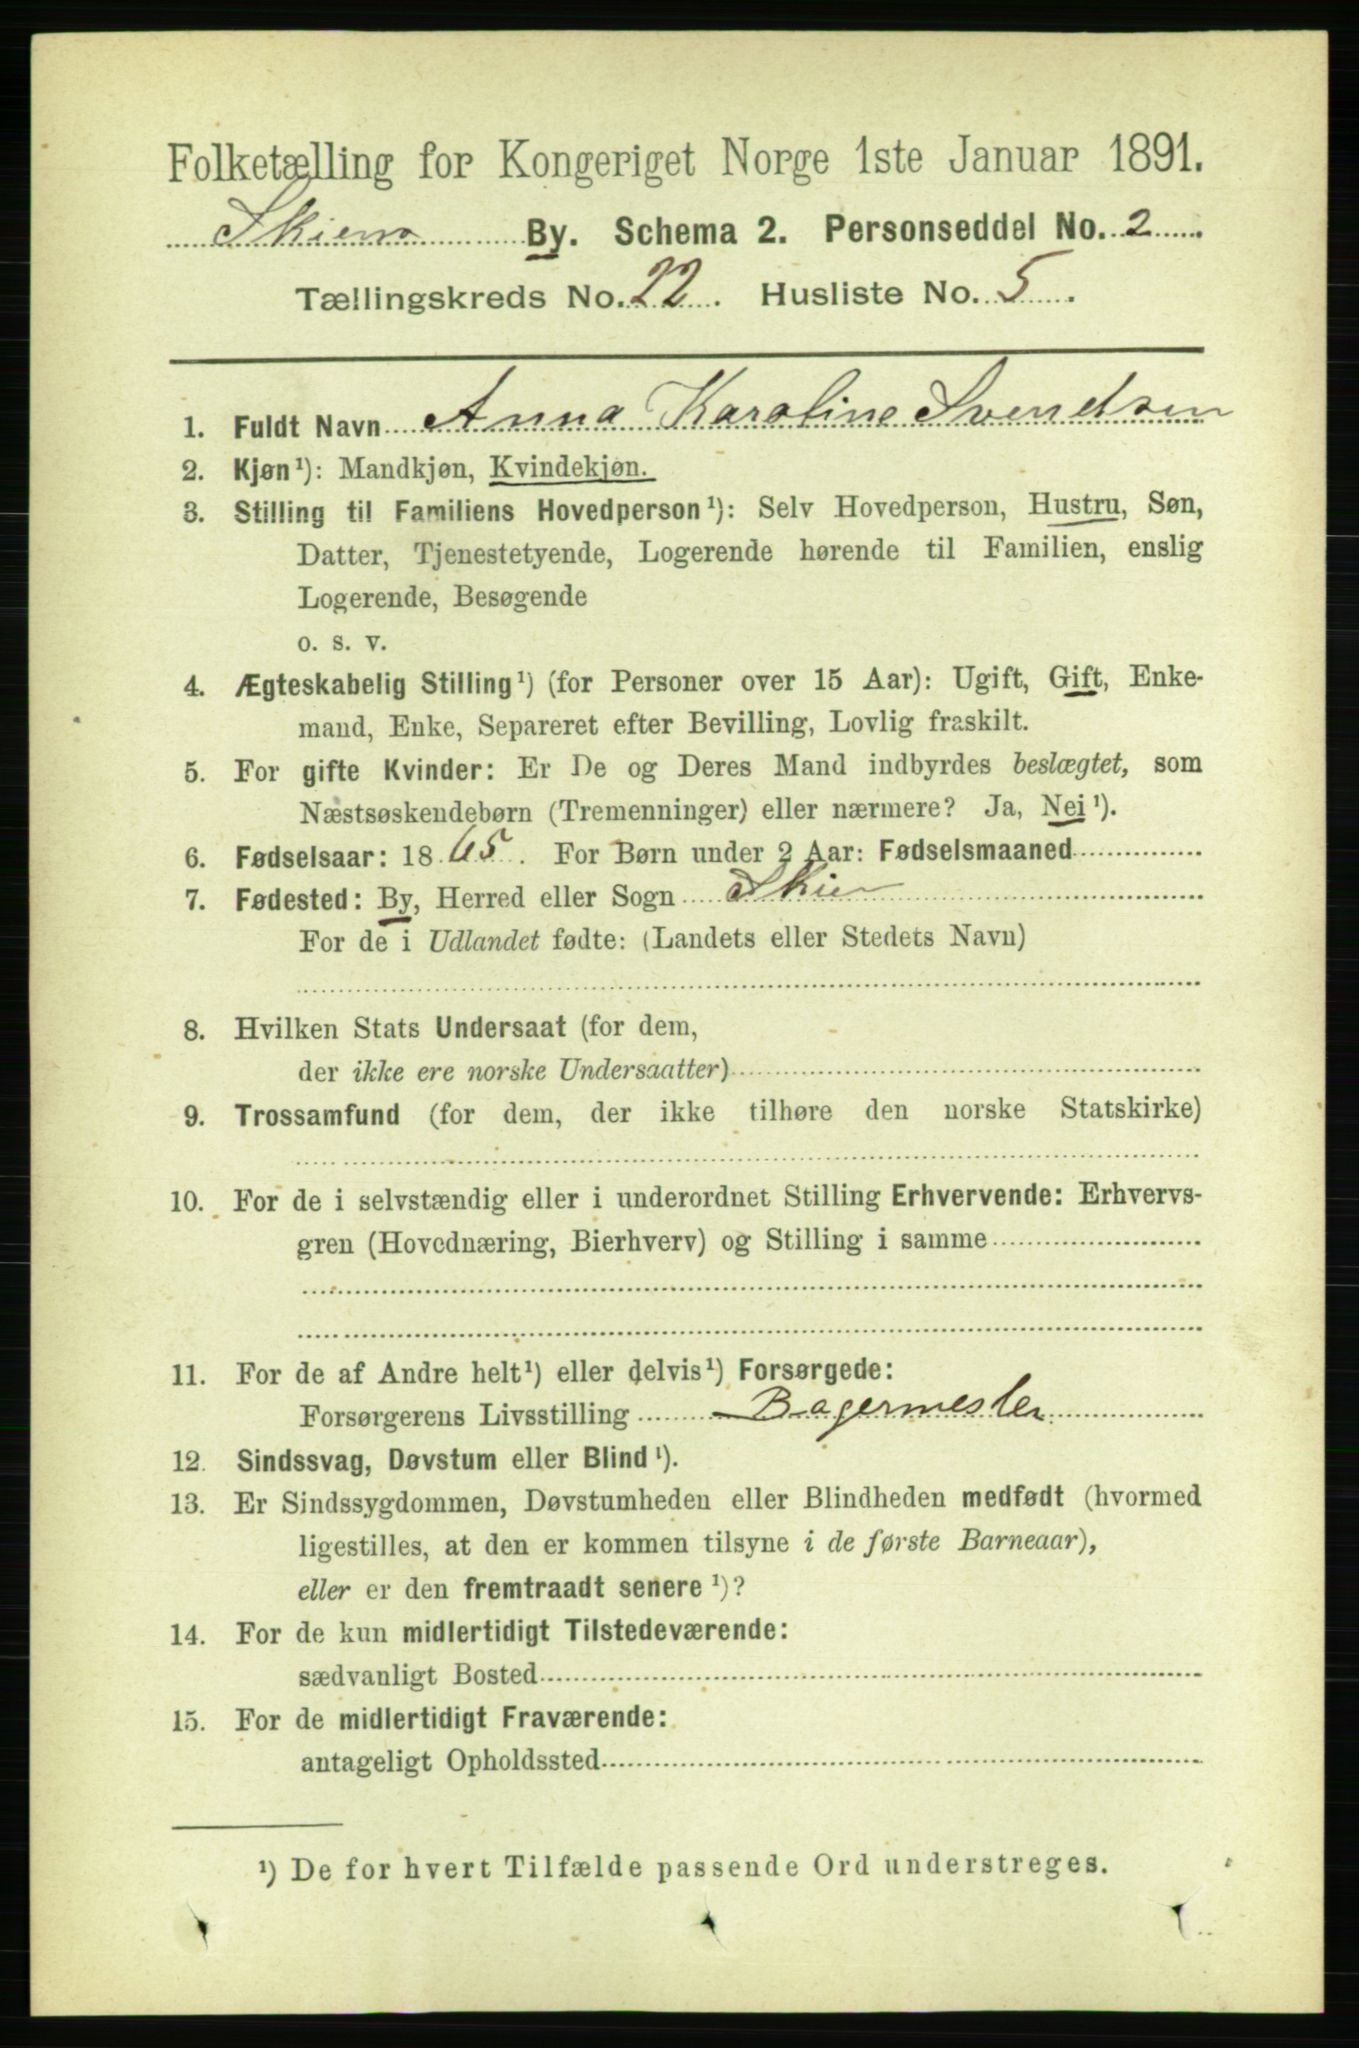 Folketælling for Kongeriget Norge 1ste Januar 1891.
Skien By. Schema 2. Personseddel No. 2
Tællingskreds No. 22. Husliste No. 5.
1. Fuldt Navn Anna Karoline Svendsen
2. Kjøn¹): Mandkjøn, Kvindekjøn.
3. Stilling til Familiens Hovedperson¹): Selv Hovedperson, Hustru, Søn,
Datter, Tjenestetyende, Logerende hørende til Familien, enslig
Logerende, Besøgende
o. s. v.
4. Ægteskabelig Stilling¹) (for Personer over 15 Aar): Ugift, Gift, Enke-
mand, Enke, Separeret efter Bevilling, Lovlig fraskilt.
5. For gifte Kvinder: Er De og Deres Mand indbyrdes beslægtet, som
Næstsøskendebørn (Tremenninger) eller nærmere? Ja, Nei¹).
6. Fødselsaar: 1865. For Børn under 2 Aar: Fødselsmaaned
7. Fødested: By, Herred eller Sogn Skien
For de i Udlandet fødte: (Landets eller Stedets Navn)
8. Hvilken Stats Undersaat (for dem,
der ikke ere norske Undersaatter)
9. Trossamfund (for dem, der ikke tilhøre den norske Statskirke)
10. For de i selvstændig eller i underordnet Stilling Erhvervende: Erhvervs-
gren (Hovednæring, Bierhverv) og Stilling i samme
11. For de af Andre helt¹) eller delvis¹) Forsørgede:
Forsørgerens Livsstilling Bagermester
12. Sindssvag, Døvstum eller Blind¹).
13. Er Sindssygdommen, Døvstumheden eller Blindheden medfødt (hvormed
ligestilles, at den er kommen tilsyne i de første Barneaar),
eller er den fremtraadt senere¹)?
14. For de kun midlertidigt Tilstedeværende:
sædvanligt Bosted
15. For de midlertidigt Fraværende:
antageligt Opholdssted
¹) De for hvert Tilfælde passende Ord understreges.